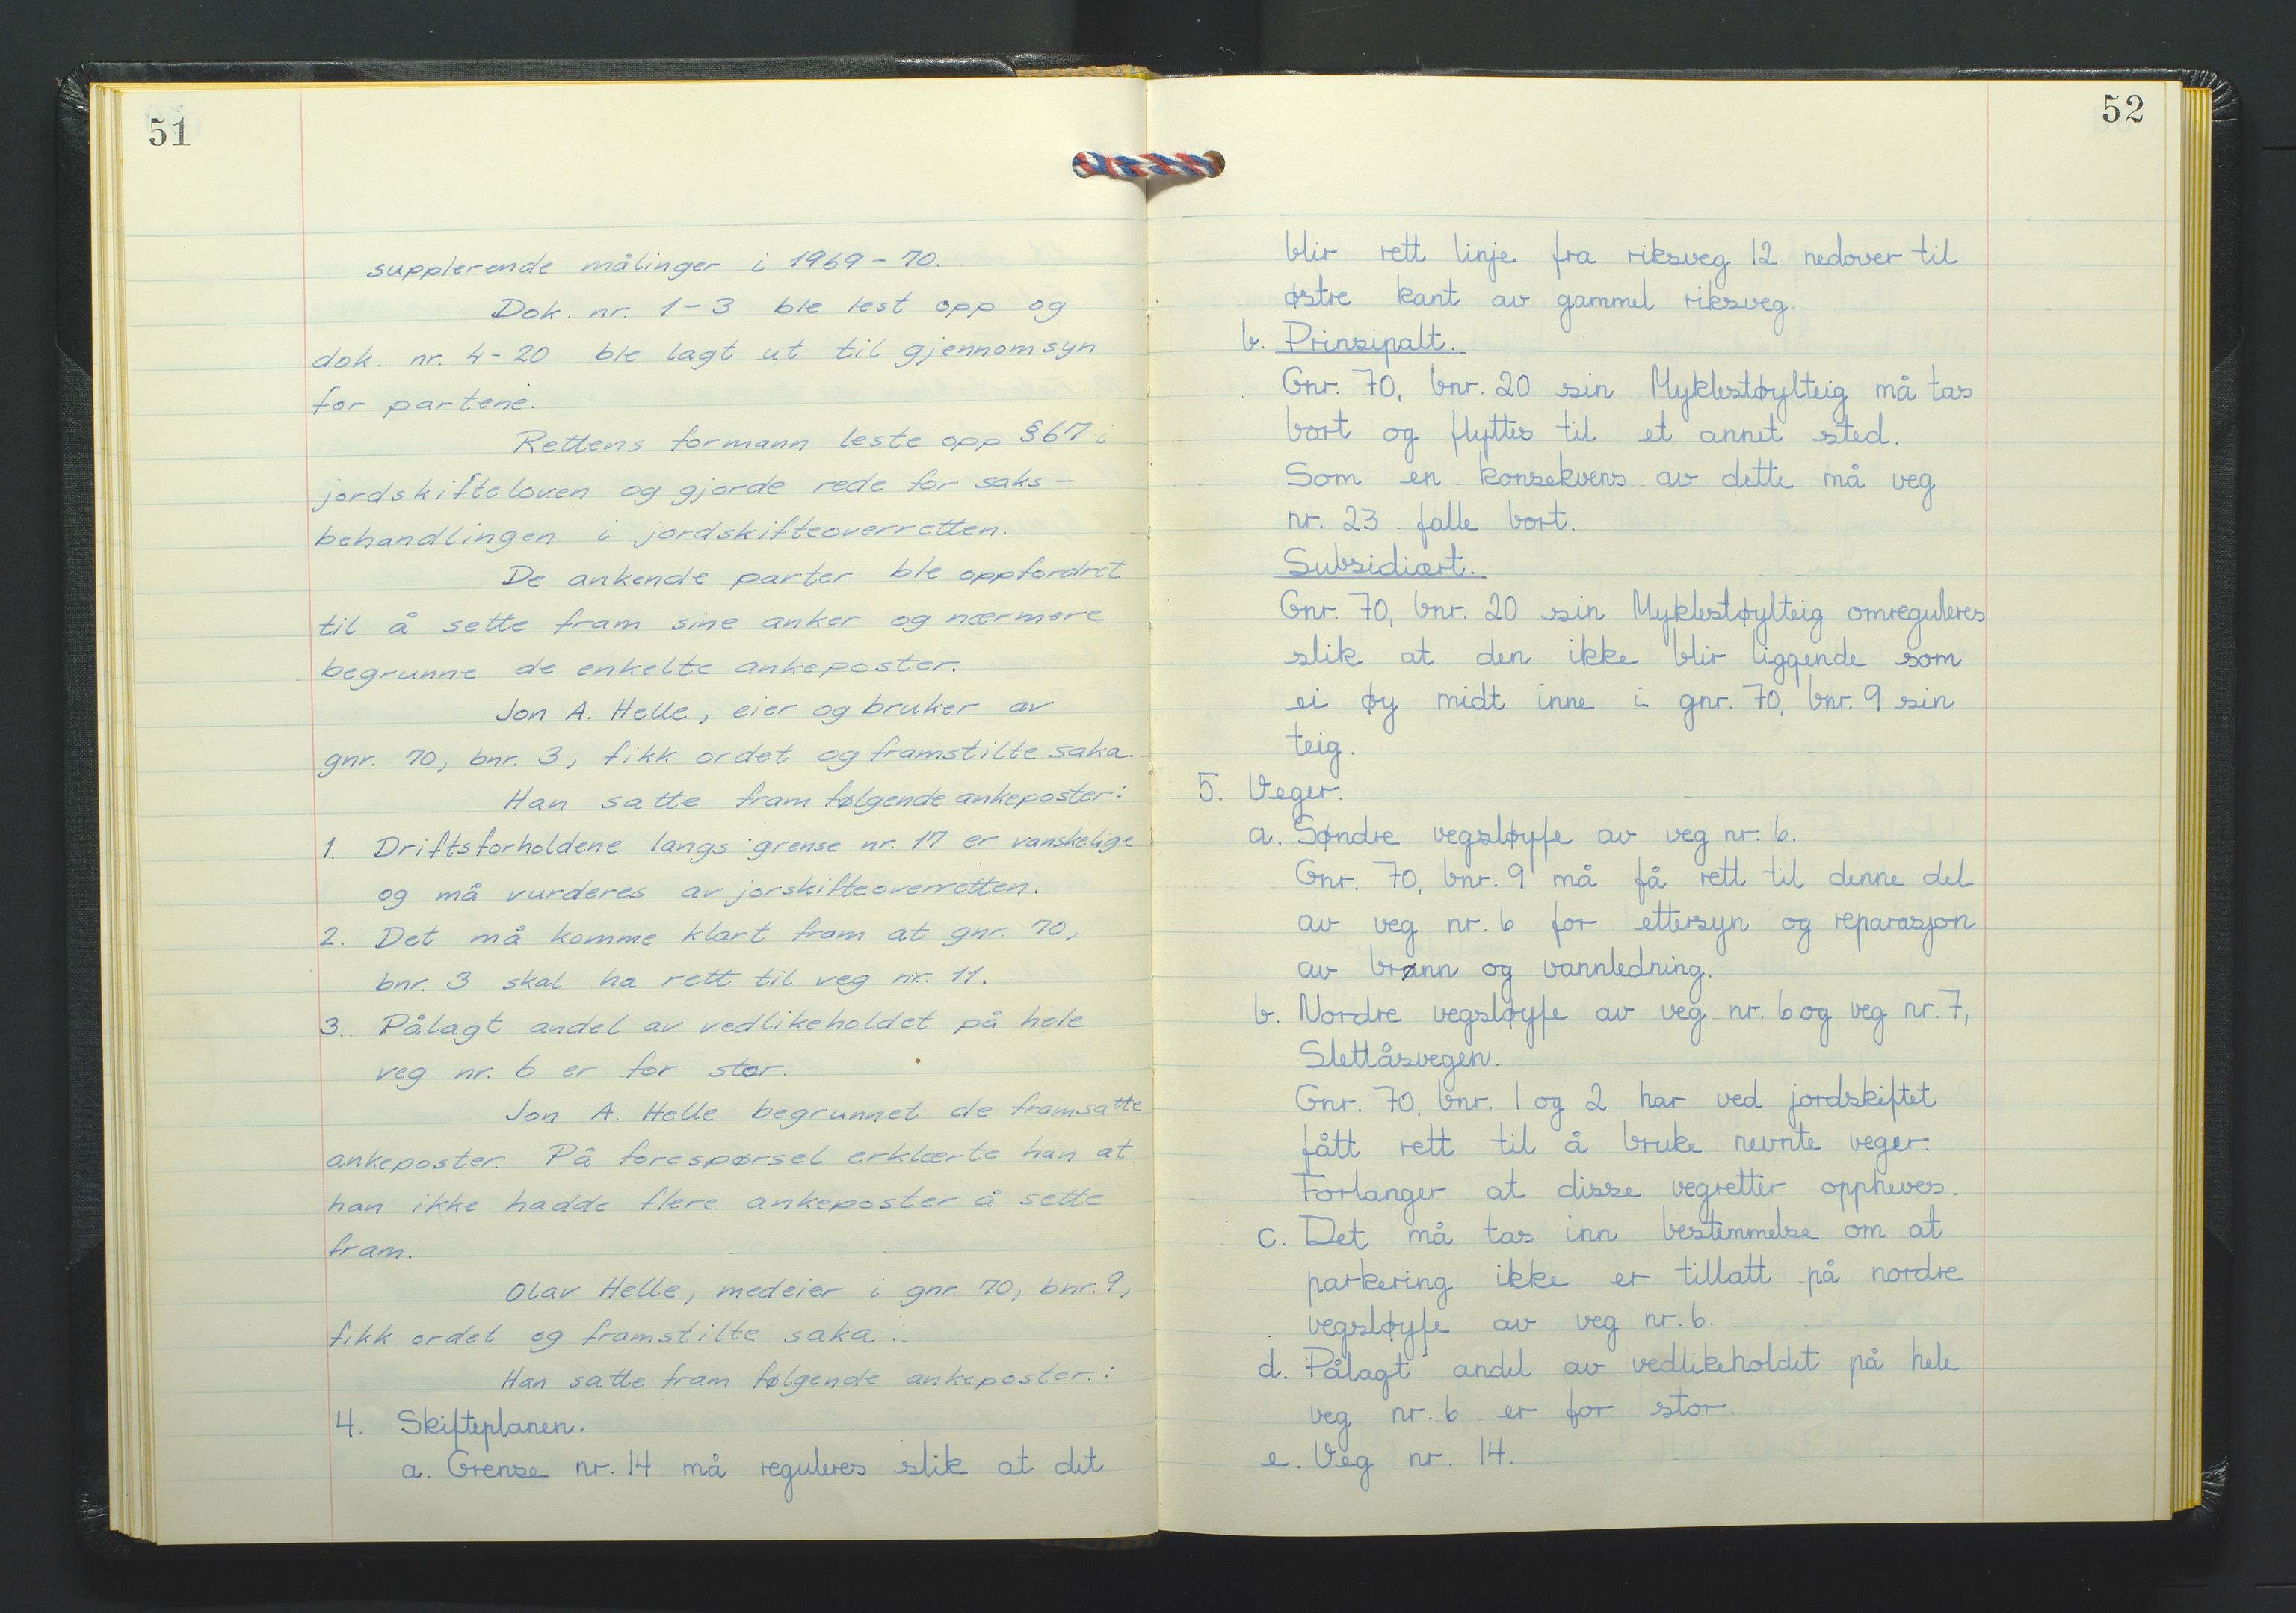 51
supplerende målinger i 1969-70.
Dok. nr. 1-3 ble lest opp og
dok. nr. 4-20 ble lagt ut til gjennomsyn
for partene.
Rettens formann leste opp §67 i
jordskifteloven og gjorde rede for saks-
behandlingen i jordskifteoverretten.
De ankende parter ble oppfordret
til å sette fram sine anker og nærmere
begrunne de enkelte ankeposter.
Jon A. Helle, eier og bruker av
gnr. 70, bnr. 3, fikk ordet og framstilte saka.
Han satte fram følgende ankeposter:
1. Driftsforholdene langs grense nr. 17 er vanskelige
og må vurderes av jorskifteoverretten.
2. Det må komme klart fram at gnr. 70,
bnr. 3 skal ha rett til veg nr. 11.
3. Pålagt andel av vedlikeholdet på hele
veg nr. 6 er for stor.
Jon A. Helle begrunnet de framsatte
ankeposter. På forespørsel erklærte han at
han ikke hadde flere ankeposter å sette
fram.
Olav Helle, medeier i gnr. 70, bnr. 9,
fikk ordet og framstilte saka.
Han satte fram følgende ankeposter:
4. Skifteplanen.
a. Grense nr. 14 må reguleres slik at det
52
blir rett linje fra riksveg 12 nedover til
østre kant av gammel riksveg.
b. Prinsipalt.
Gnr. 70, bnr. 20 sin Myklestøylteig må tas
bort og flyttes til et annet sted.
Som en konsekvens av dette må veg
nr. 23 falle bort.
Subsidiært.
Gnr. 70, bnr. 20 sin Myklestøylteig omreguleres
slik at den ikke blir liggende som
ei øy midt inne i gnr. 70, bnr. 9 sin
teig.
5. Veger.
a. Søndre vegsløyfe av veg nr. 6.
Gnr. 70, bnr. 9 må få rett til denne del
av veg nr. 6 for ettersyn og reparasjon
av brønn og vannledning.
b. Nordre vegsløyfe av veg nr. 6 og veg nr. 7,
Slettåsvegen.
Gnr. 70, bnr. 1 og 2 har ved jordskiftet
fått rett til å bruke nevnte veger.
Forlanger at disse vegretter oppheves.
c. Det må tas inn bestemmelse om at
parkering ikke er tillatt på nordre
vegsløyfe av veg nr. 6.
d. Pålagt andel av vedlikeholdet på hele
veg nr. 6 er for stor.
e. Veg nr. 14.